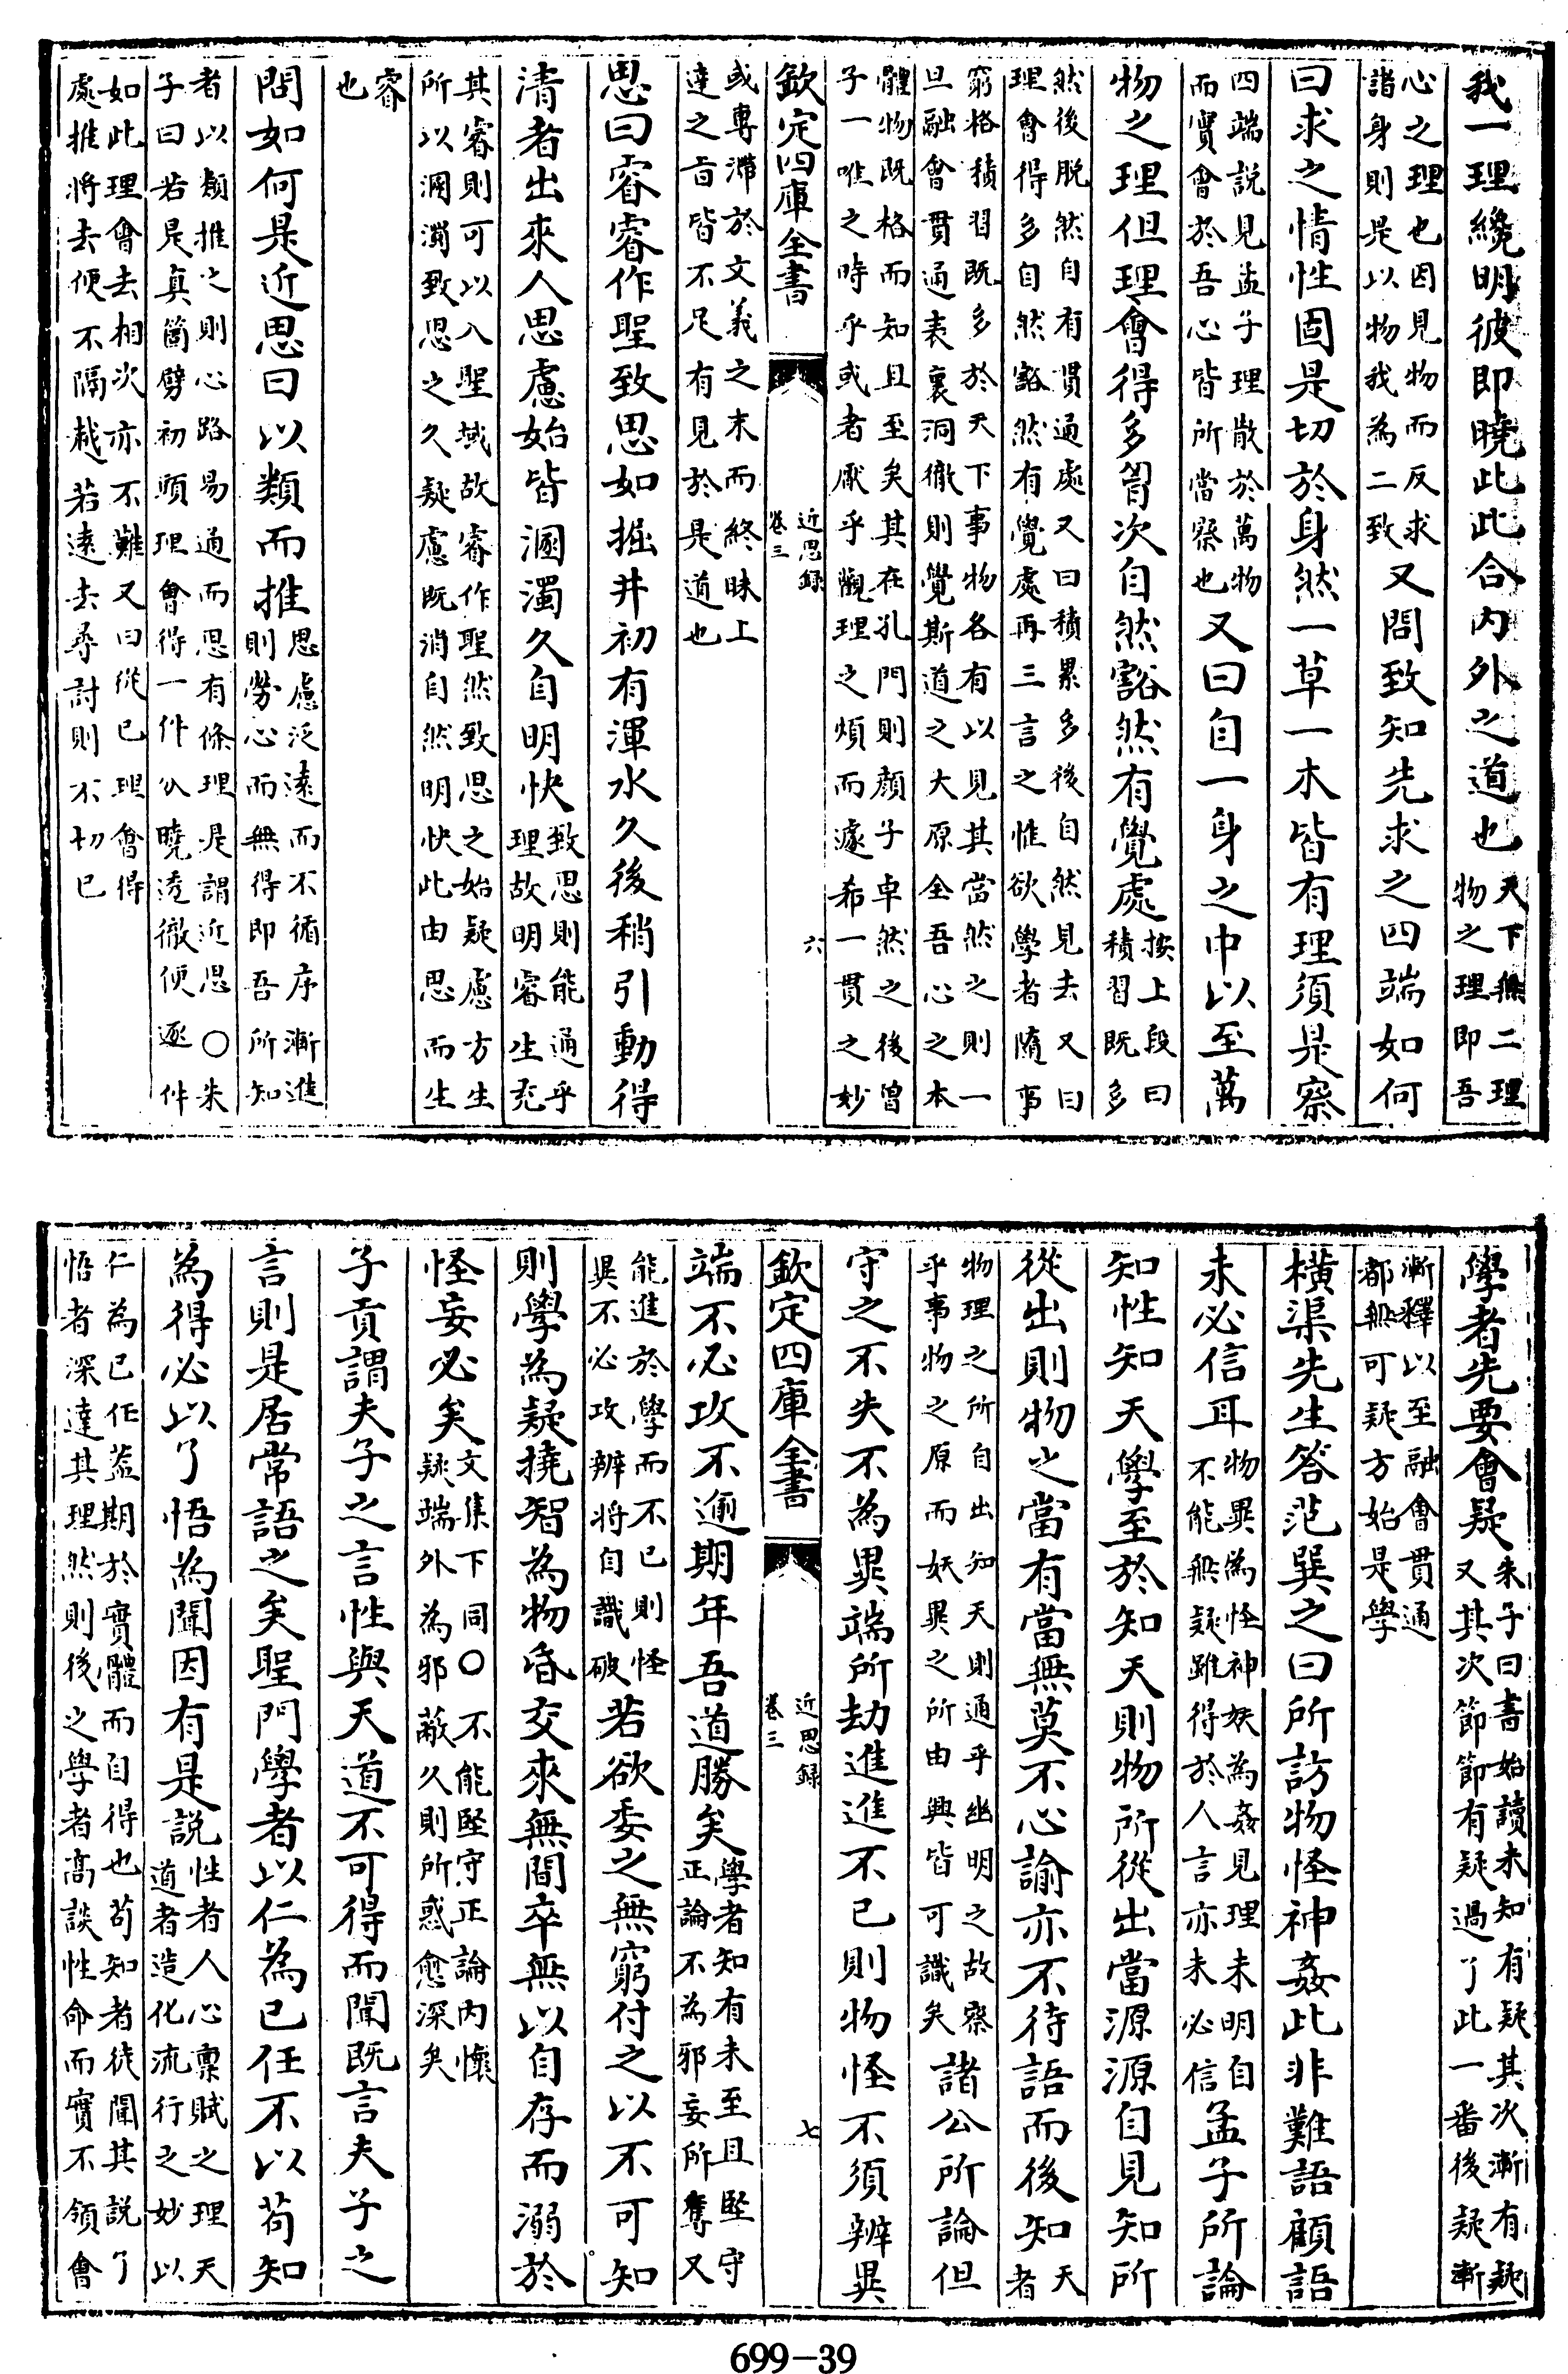 我一理纔明彼即曉此此合内外之道也天下無二理
物之理即吾
心之理也因見物而反求
諸身則是以物我為二致又問致知先求之四端如何
曰求之情性固是切於身然一草一木皆有理須是察
四端説見孟子理散於萬物
而實會於吾心皆所當察也又曰自一身之中以至萬
物之理但理會得多胷次自然豁然有覺處按上段曰
積習既多
然後脱然自有貫通處又曰積累多後自然見去又曰
理會得多自然豁然有覺處再三言之惟欲學者隨事
窮格積習既多於天下事物各有以見其當然之則一
旦融會貫通表裏洞徹則覺斯道之大原全吾心之本
體物既格而知且至矣其在孔門則顔子卓然之後曽
子一唯之時乎或者厭乎觀理之煩而遽希一貫之妙
欽定四庫全書
近思録
卷三
六
或專滯於文義之末而終昧上
達之旨皆不足有見於是道也
思曰睿睿作聖致思如掘井初有渾水久後稍引動得
清者出來人思慮始皆溷濁久自明快致思則能通乎
理故明睿生充
其睿則可以入聖域故睿作聖然致思之始疑慮方生
所以溷濁致思之久疑慮既消自然明快此由思而生
睿
也
問如何是近思曰以類而推思慮泛遠而不循序漸進
則勞心而無得即吾所知
者以類推之則心路易通而思有條理是謂近思○朱
子曰若是真箇劈初頭理會得一件分曉透徹便逐件
如此理會去相次亦不難又曰從已理會得
處推將去便不隔越若遠去尋討則不切已
學者先要會疑朱子曰書始讀未知有疑其次漸有疑
又其次節節有疑過了此一番後疑漸
漸釋以至融會貫通
都無可疑方始是學
横渠先生答范巽之曰所訪物怪神姦此非難語顧語
未必信耳物異為怪神妖為姦見理未明自
不能無疑雖得於人言亦未必信孟子所論
知性知天學至於知天則物所從出當源源自見知所
從出則物之當有當無莫不心諭亦不待語而後知天
者
物理之所自出知天則通乎幽明之故察
乎事物之原而妖異之所由興皆可識矣諸公所論但
守之不失不為異端所劫進進不已則物怪不須辨異
欽定四庫全書
近思録
卷三
七
端不必攻不逾期年吾道勝矣學者知有未至且堅守
正論不為邪妄所奪又
能進於學而不已則怪
異不必攻辨將自識破若欲委之無窮付之以不可知
則學為疑撓智為物昏交來無間卒無以自存而溺於
怪妄必矣文集下同○不能堅守正論内懷
疑端外為邪蔽久則所惑愈深矣
子貢謂夫子之言性與天道不可得而聞既言夫子之
言則是居常語之矣聖門學者以仁為已任不以苟知
為得必以了悟為聞因有是説性者人心禀賦之理天
道者造化流行之妙以
仁為已任葢期於實體而自得也苟知者徒聞其説了
悟者深達其理然則後之學者髙談性命而實不領會